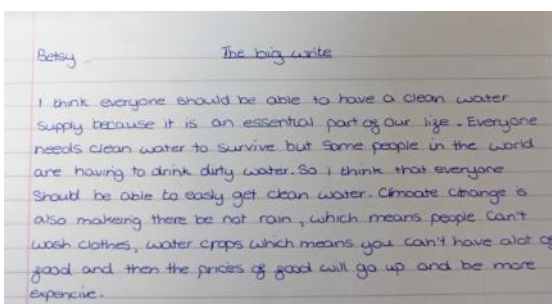 Betsy. The big write
I think everyone should be able to have a clean water
supply because it is an essential part of our life. Everyone
needs clean water to survive but some people in the world
are having to drink dirty water. So i think that everyone
should be able to easly get clean water. Climoate change is
also makeing there be not rain, which means people can't
wash clothes, water crops which means you can't have alot of
food and then the prices of food will go up and be more
expencive.